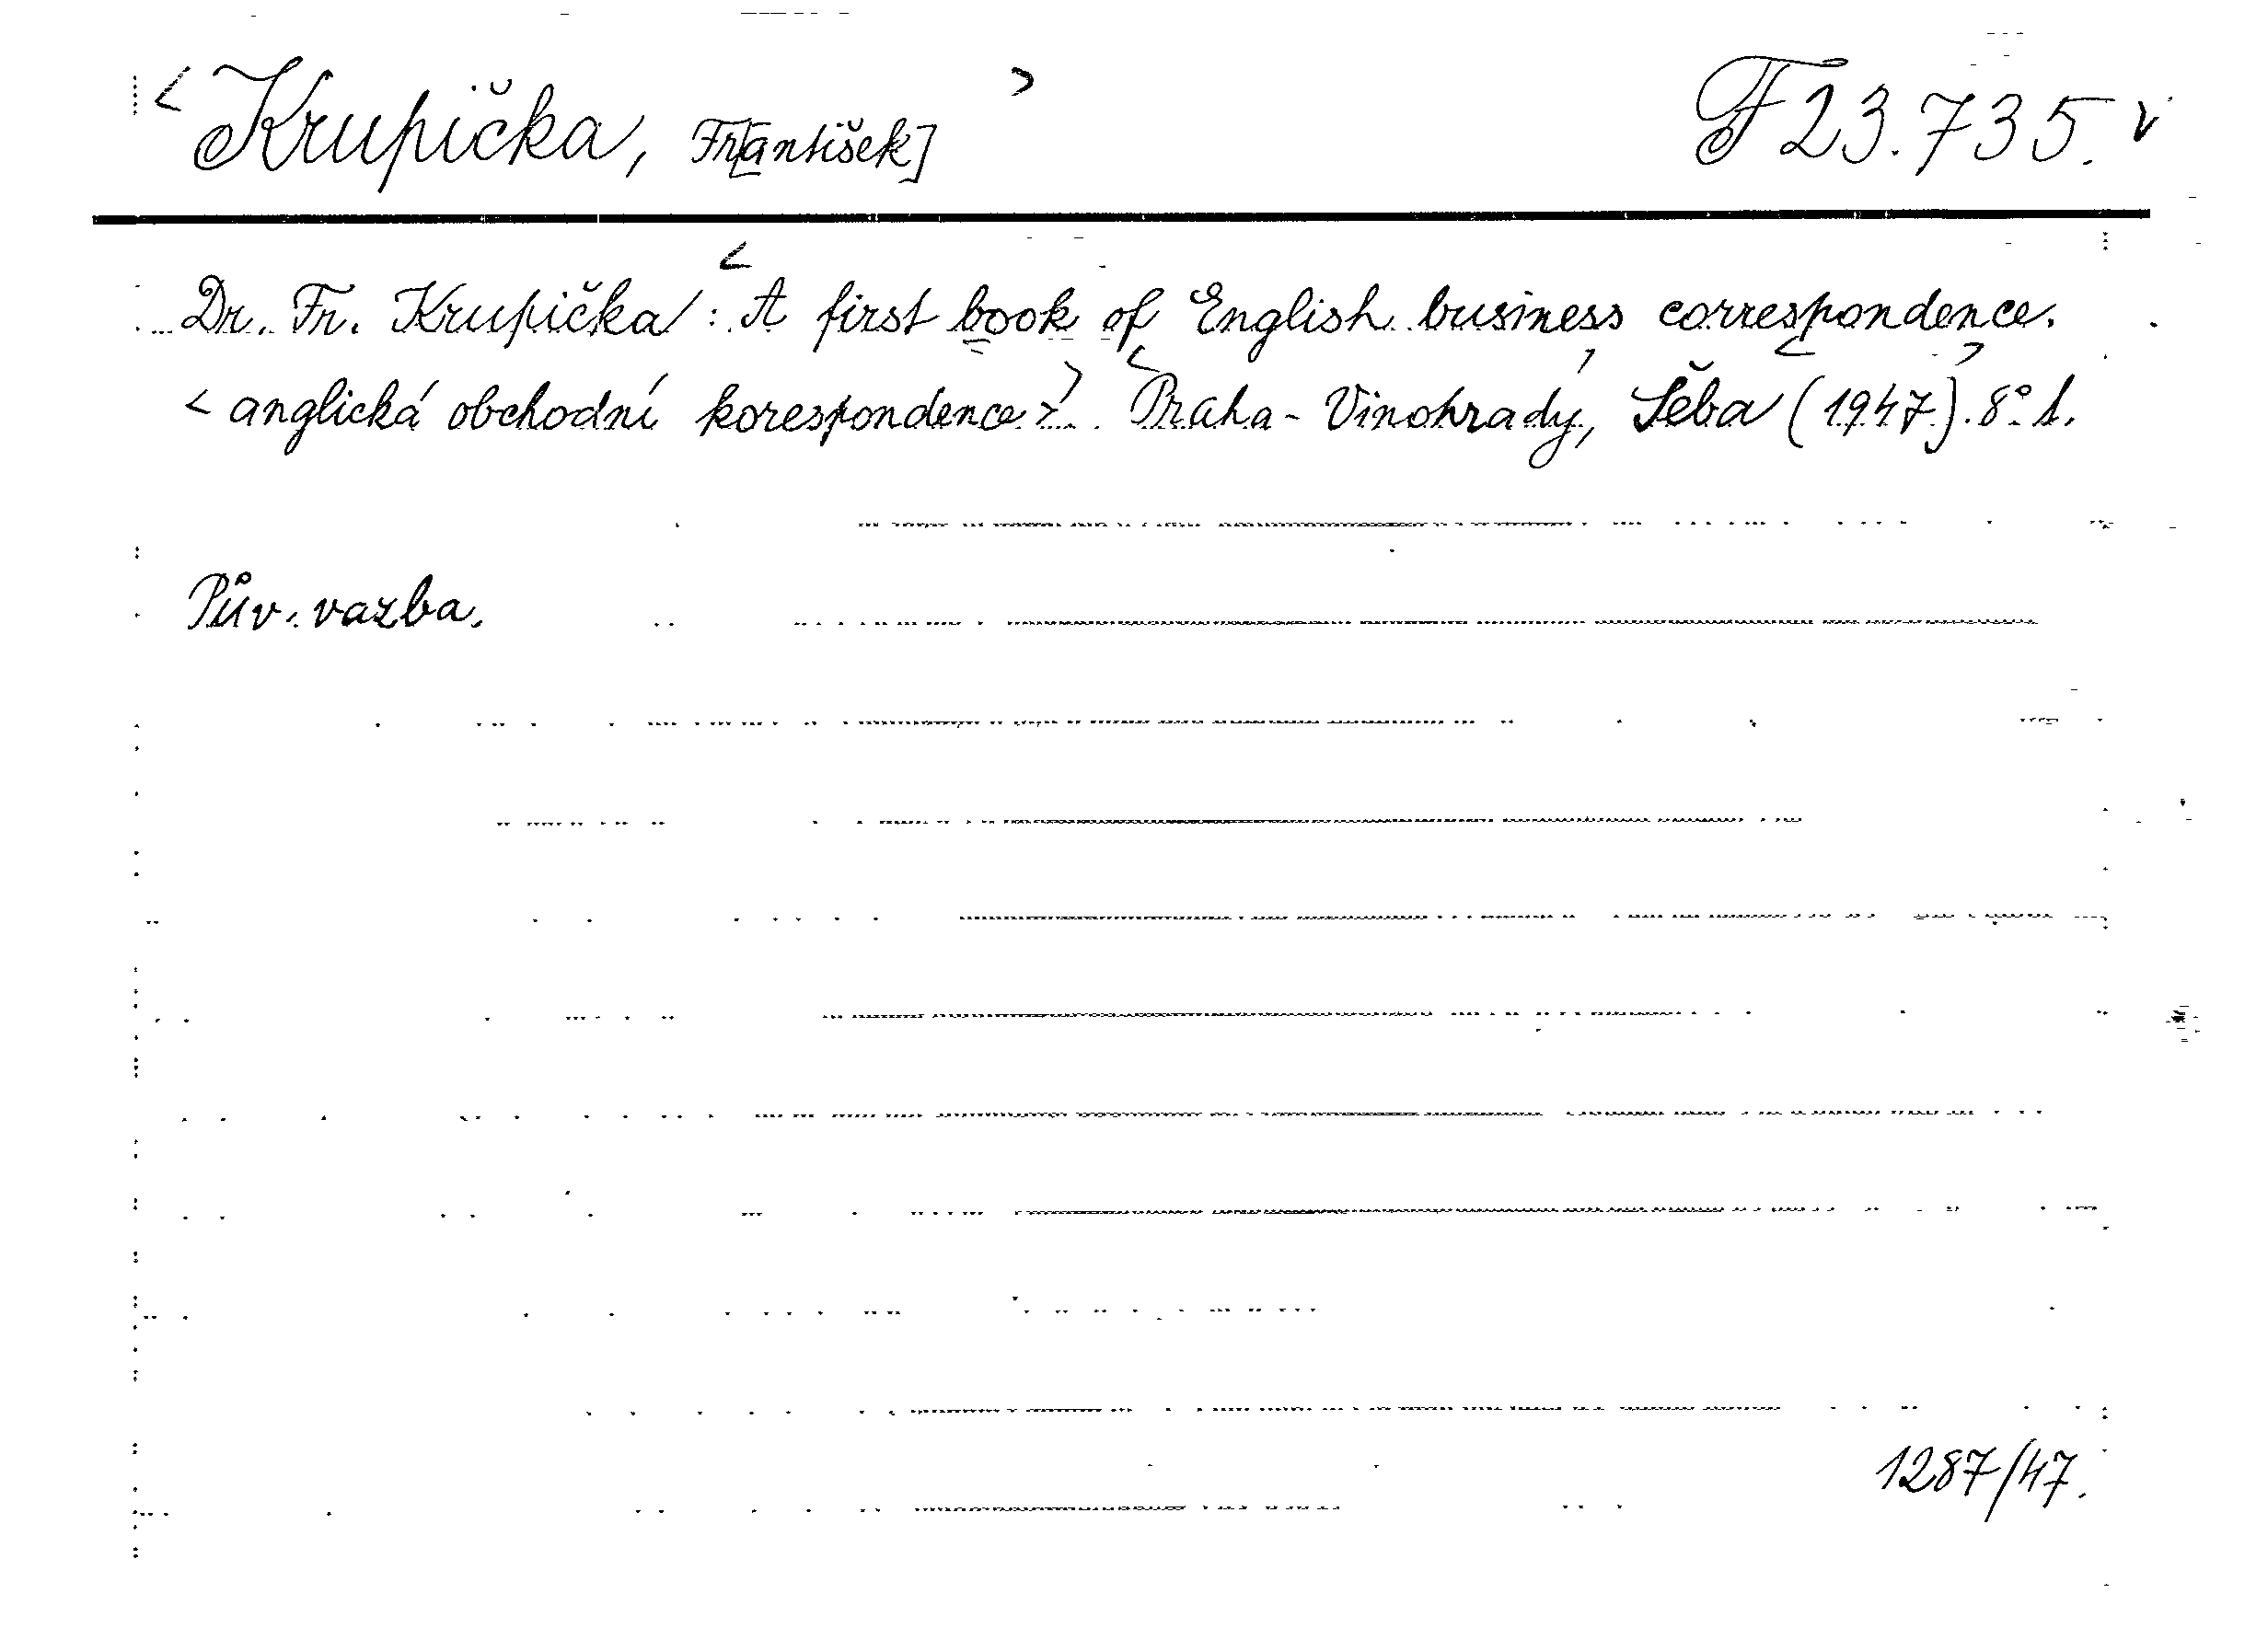 <Krupička, Fr[antišek]> F 23.735. v
Dr. Fr. Krupička: <A first book of English business correspondence.
<anglická obchodní korespondence>> <Praha-Vinohrady>, Šeba <(1947)>. 8° 1.
Pův. vazba.
1287/47.